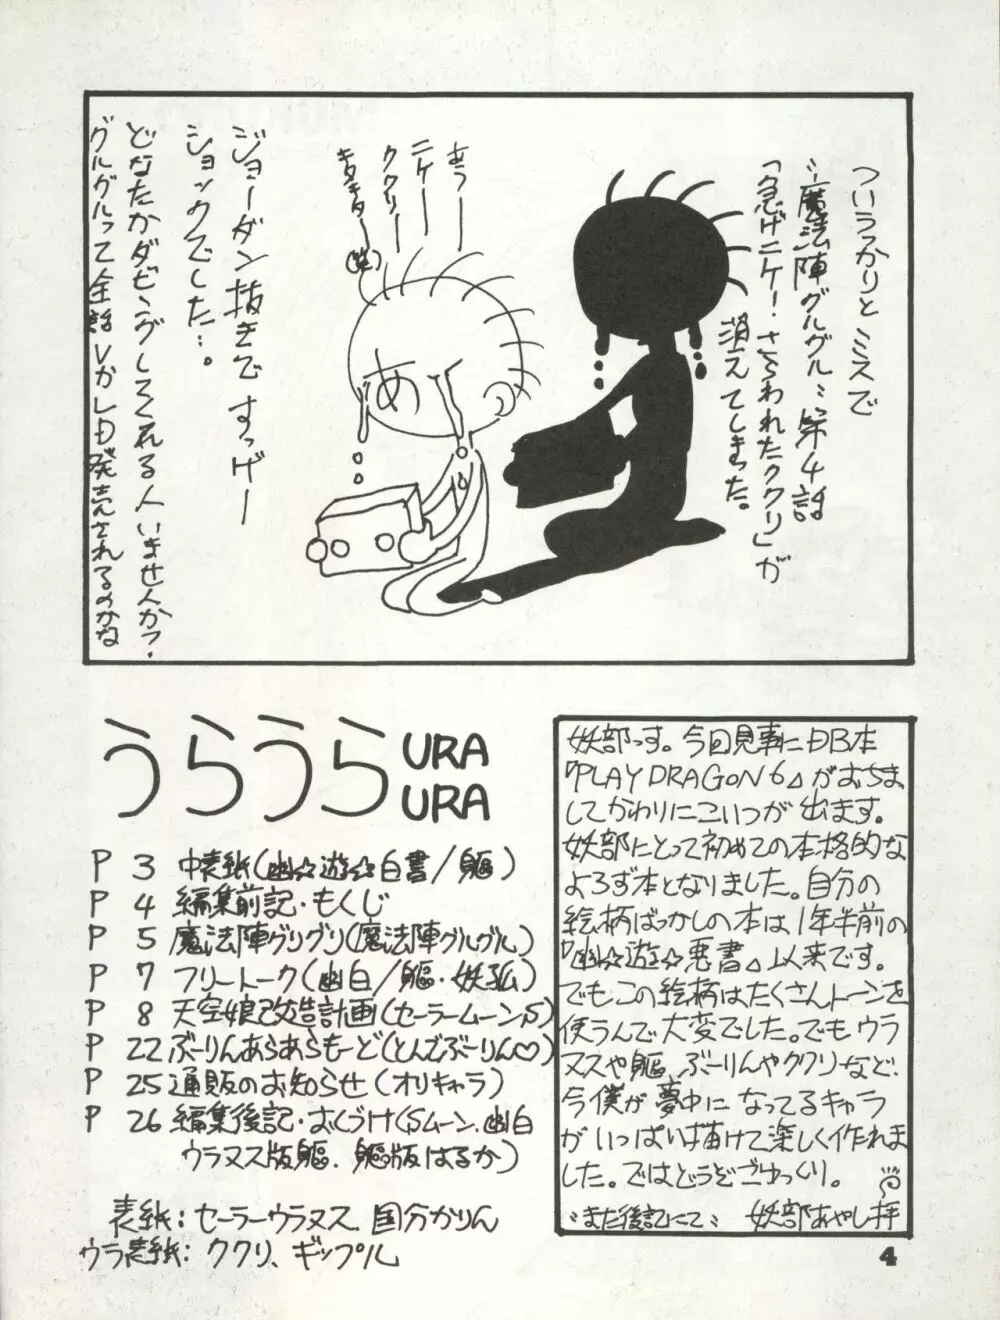 ついうっかりとミスで
“魔法陣グルグル”第4話
「急げニケ！さらわれたククリ」が
消えてしまった。
あうー
ニケー
ククリー
キタキター
(笑)
ジョーダン抜きですっげー
ショックでした…。
どなたかダビングしてくれる人いませんか？
グルグルって全話VかLD発売されるのかな
うらうら
URA
URA
P 3 中表紙(幽☆遊☆白書/軀)
P 4 編集前記・もくじ
P 5 魔法陣グリグリ(魔法陣グルグル)
P 7 フリートーク(幽白/軀・妖狐)
P 8 天空娘改造計画(セーラームーンS)
P 22 ぶーりんあらあらもーど(とんでぶーりん♡)
P 25 通販のお知らせ(オリキャラ)
P 26 編集後記・おくづけ(Sムーン.幽白
ウラヌス版軀.軀版はるか)
表紙：セーラーウラヌス.国分かりん
ウラ表紙：ククリ、ギップル
妖部っす。今回見事にDB本
『PLAY DRAGON 6』がおちま
してかわりにこいつが出ます。
妖部にとって初めての本格的な
よろず本となりました。自分の
絵柄ばっかしの本は1年半前の
『幽☆遊☆悪書』以来です。
でもこの絵柄はたくさんトーンを
使うんで大変でした。でもウラ
ヌスや軀、ぶーりんやククリなど、
今僕が夢中になってるキャラ
がいっぱい描けて楽しく作れま
した。ではどうぞごゆっくり。
“また後記にて” 妖部あやし拝
4